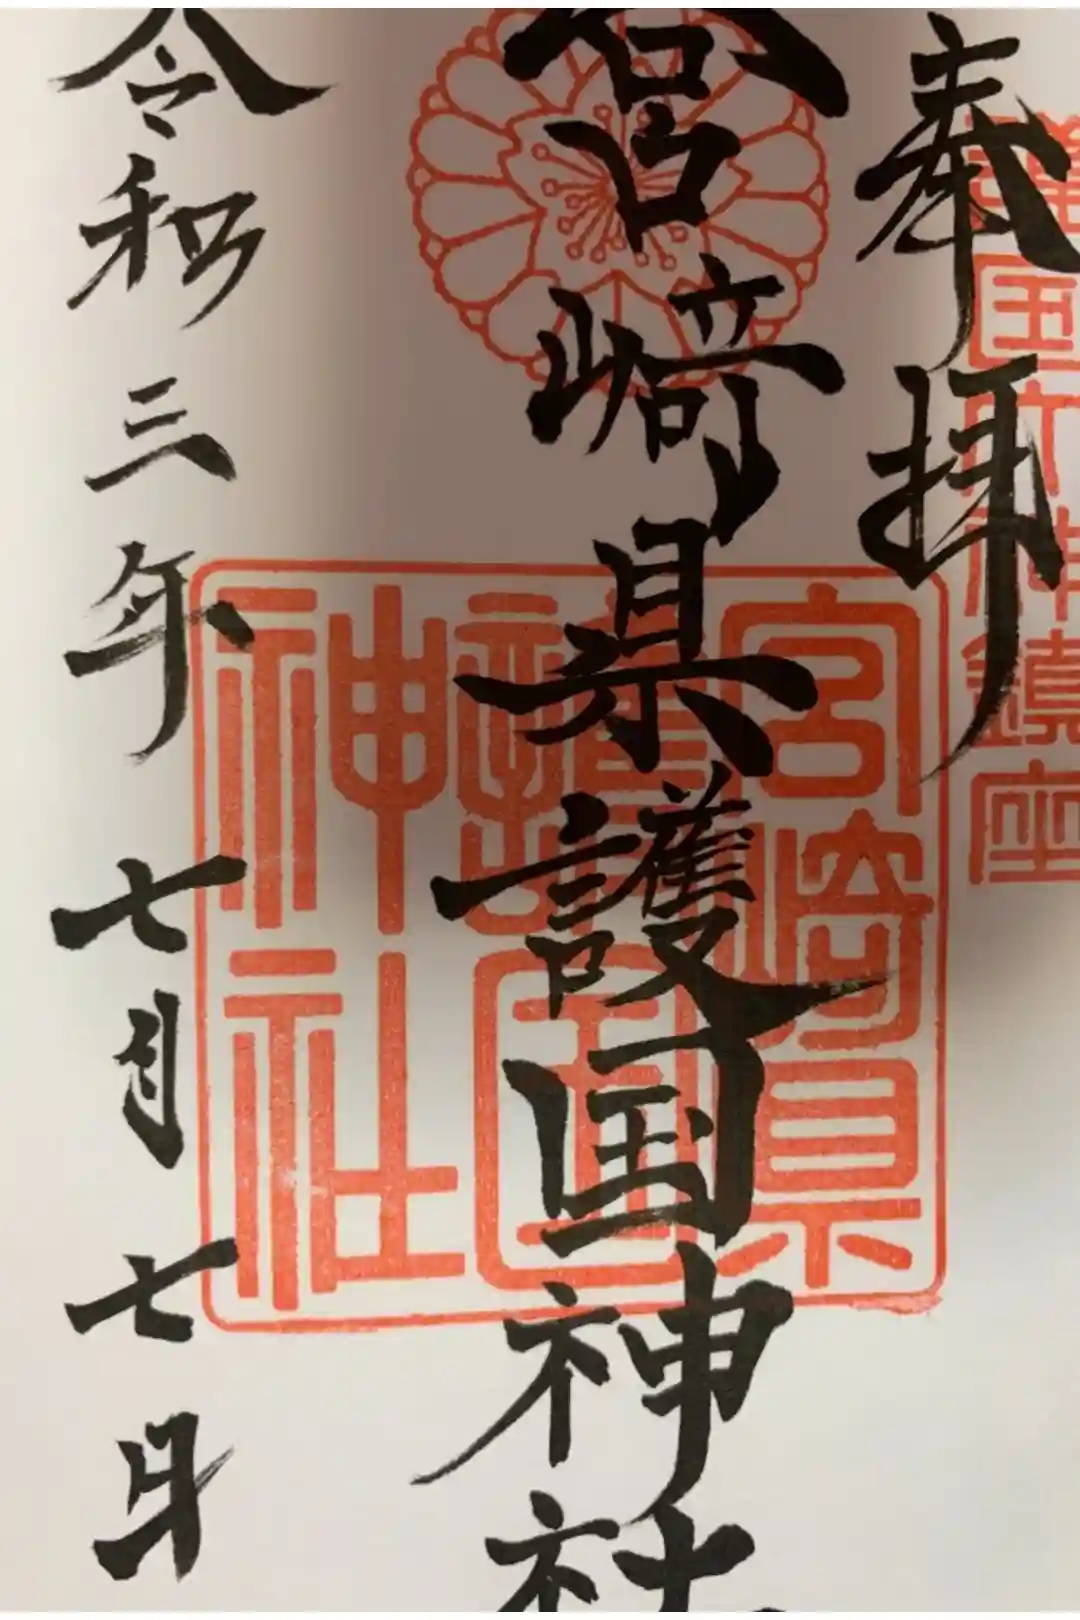 護国大神鎮座
奉拝
宮﨑県護国神社
宮崎県
護国
神社
令和三年七月七日